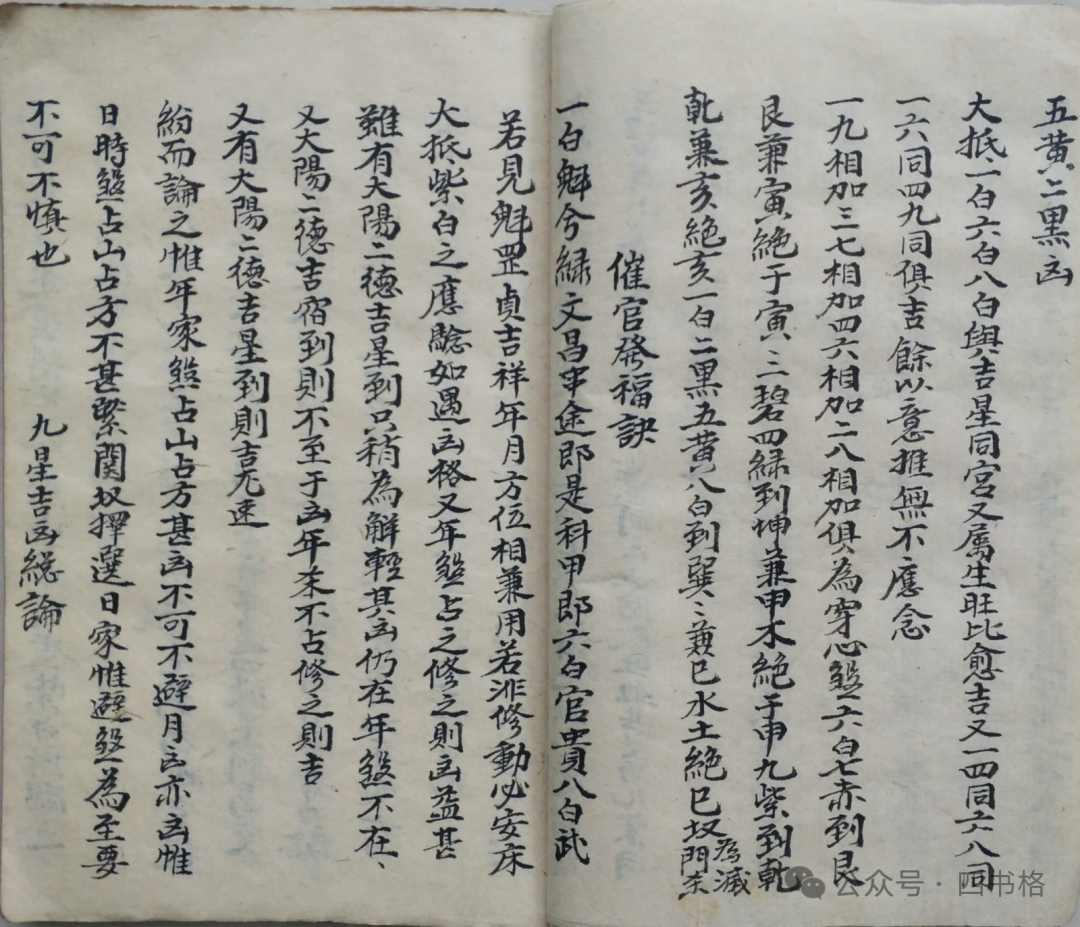 五黄二黑凶
大抵一白六白八白與吉星同宮又屬生旺比愈吉又一四同六八同
一六同四九同俱吉餘以意推無不應念
一九相加三七相加四六相加二八相加俱為穿心煞六白七赤到艮
艮兼寅絶于寅三碧四緑到坤兼申木絶于申九紫到乾
乾兼亥絶亥一白二黑五黄八白到巽〻兼巳水土絶巳坟為滅門杀
催官發福訣
一白魁兮緑文昌中途郎是科甲郎六白官貴八白武
若見魁罡貞吉祥年月方位相兼用若非修動必安床
大抵紫白之應驗如遇凶格又年煞占之修之則凶益甚
雖有大陽二德吉星到只稍為解輕其凶仍在年煞不在、
又大陽二德吉宿到則不至于凶年杀不占修之則吉
又有大陽二德吉星到則吉尤速
紛而論之惟年家煞占山占方甚凶不可不避月亦凶惟
日時煞占山占方不甚緊関坟擇選日家惟避煞為至要
不可不慎也
九星吉凶総論
公众号·四书格